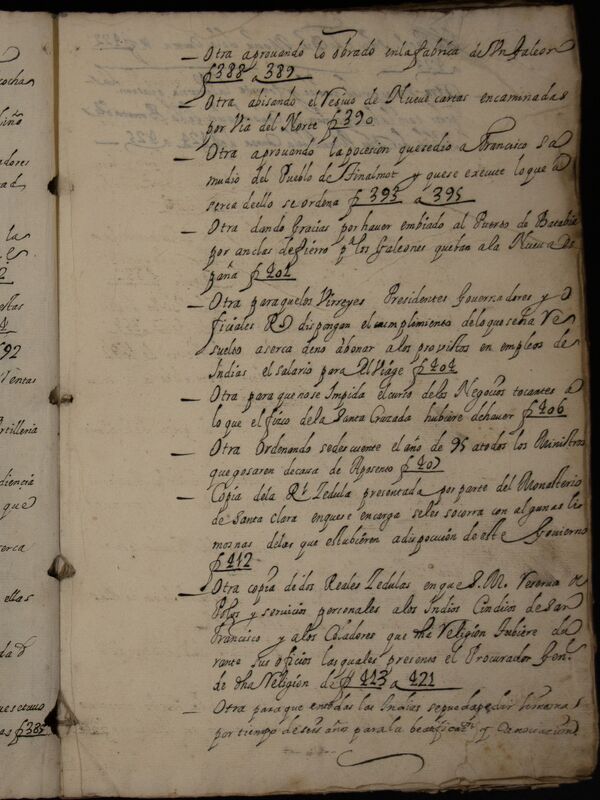 — Otra aprouando lo obrado en la fabrica de Vn Galeon
f 388 a 389
— Otra abisando el Resiuo de Nueue cartas encaminadas
por Via del Norte f 390
— Otra aprouando la pocesion que se dio a Francisco Sa
mudio del Pueblo de y que se execute lo que a
serca de ello se ordena f 393 a 395
— Otra dando Gracias por hauer embiado al Puerto de
por anclas de fierro pa los Galeones que ban a la Nueua Es
paña f 401
— Otra para que los Virreyes Presidentes Gouernadores y O
ficiales Rs dispongan el cumplimiento de lo que se ha Re
suelto aserca de no abonar a los provistos en empleos de
Indias el salario para el Viage f 404
— Otra para que no se Impida el curso de los Negocios tocantes a
lo que el fisco de la Santa Cruzada hubiere de hauer f 406
— Otra Ordenando se descuente el año de 95 a todos los Ministros
que gosaren de casa de Aposento f 407
— Copia de la Rl Zedula presentada por parte del Monasterio
de Santa Clara en que se encarga se les socorra con algunas li
mosnas de las que estubieren a disposicion de este Gouierno
f 412
— Otra copia de dos Reales Zedulas en que S. M. Reserua de
Polos y seruicios personales a los Indios de San
Francisco y a los Celadores que dha Religion hubiere du
rante sus oficios las quales presento el Procurador Genl
de dha Religion de f 413 a 421
— Otra para que en todas las Indias se pueda pedir limosnas
por tiempo de seis años para la beatificacon y Canonizacion